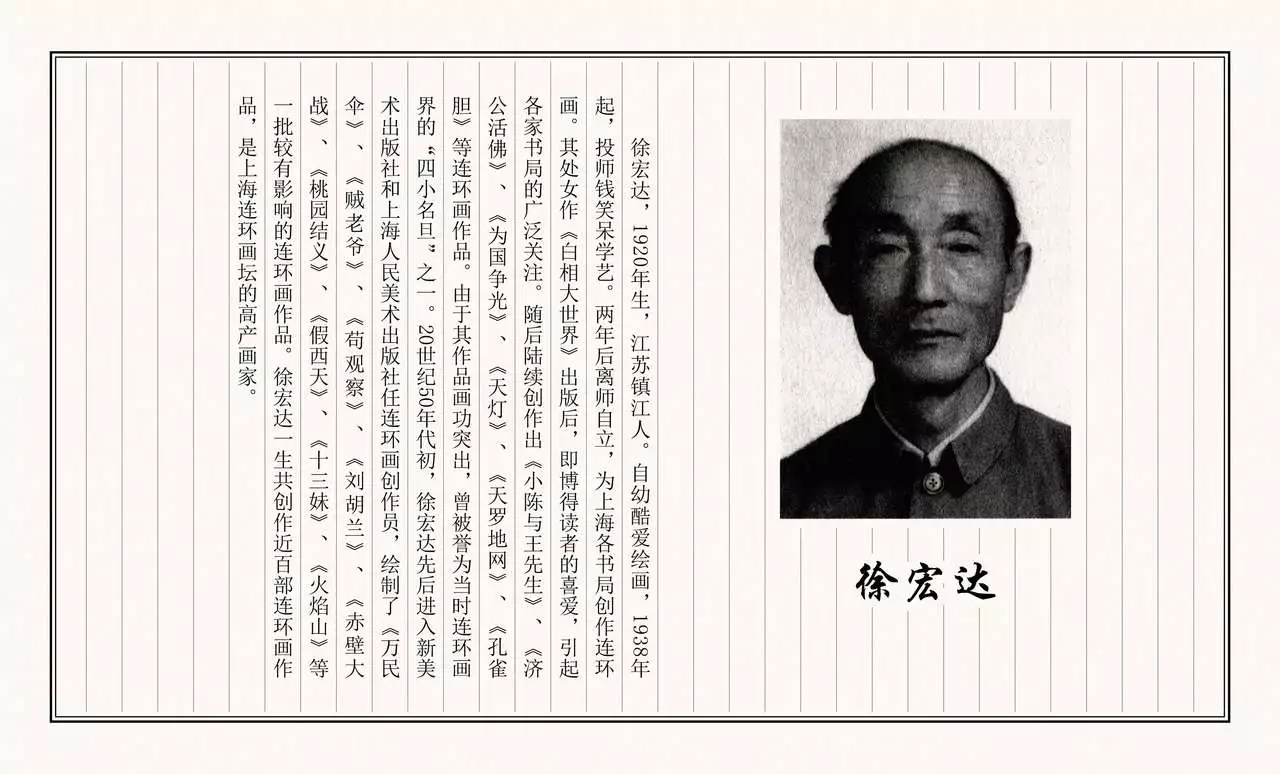 徐宏达
徐宏达，1920年生，江苏镇江人。自幼酷爱绘画，1938年
起，投师钱笑呆学艺。两年后离师自立，为上海各书局创作连环
画。其处女作《白相大世界》出版后，即博得读者的喜爱，引起
各家书局的广泛关注。随后陆续创作出《小陈与王先生》、《济
公活佛》、《为国争光》、《天灯》、《天罗地网》、《孔雀
胆》等连环画作品。由于其作品画功突出，曾被誉为当时连环画
界的“四小名旦”之一。20世纪50年代初，徐宏达先后进入新美
术出版社和上海人民美术出版社任连环画创作员，绘制了《万民
伞》、《贼老爷》、《苟观察》、《刘胡兰》、《赤壁大
战》、《桃园结义》、《假西天》、《十三妹》、《火焰山》等
一批较有影响的连环画作品。徐宏达一生共创作近百部连环画作
品，是上海连环画坛的高产画家。